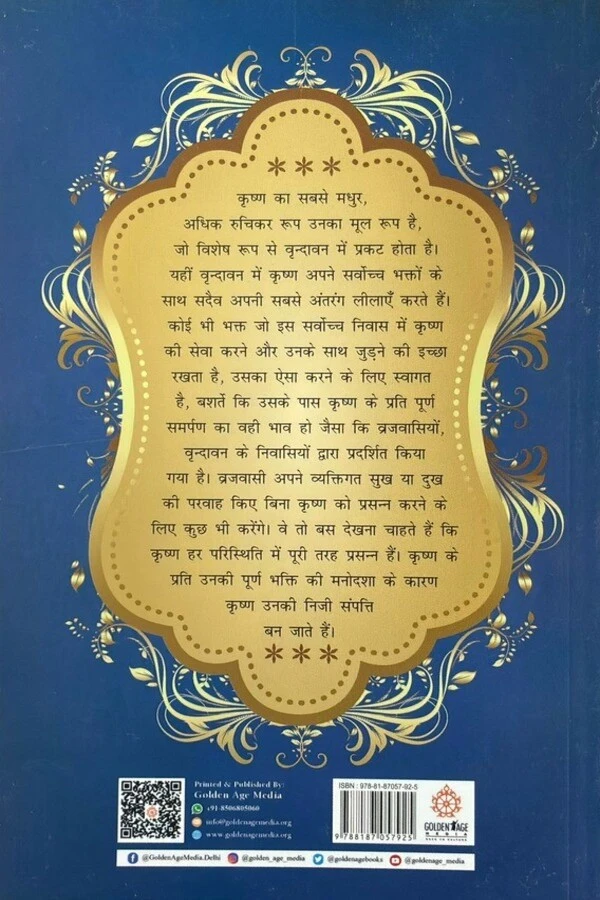 कृष्ण का सबसे मधुर,
अधिक रुचिकर रूप उनका मूल रूप है,
जो विशेष रूप से वृन्दावन में प्रकट होता है।
यहीं वृन्दावन में कृष्ण अपने सर्वोच्च भक्तों के
साथ सदैव अपनी सबसे अंतरंग लीलाएँ करते हैं।
कोई भी भक्त जो इस सर्वोच्च निवास में कृष्ण
की सेवा करने और उनके साथ जुड़ने की इच्छा
रखता है, उसका ऐसा करने के लिए स्वागत
है, बशर्ते कि उसके पास कृष्ण के प्रति पूर्ण
समर्पण का वही भाव हो जैसा कि व्रजवासियों,
वृन्दावन के निवासियों द्वारा प्रदर्शित किया
गया है। व्रजवासी अपने व्यक्तिगत सुख या दुख
की परवाह किए बिना कृष्ण को प्रसन्न करने के
लिए कुछ भी करेंगे। वे तो बस देखना चाहते हैं कि
कृष्ण हर परिस्थिति में पूरी तरह प्रसन्न हैं। कृष्ण के
प्रति उनकी पूर्ण भक्ति की मनोदशा के कारण
कृष्ण उनकी निजी संपत्ति
बन जाते हैं।
Printed & Published By:
Golden Age Media
+91-8506805060
info@goldenagemedia.org
www.goldenagemedia.org
ISBN : 978-81-87057-92-5
9788187057925
GOLDEN AGE
MEDIA
@GoldenAgeMedia.Delhi @golden_age_media @goldenagebooks @goldenage_media